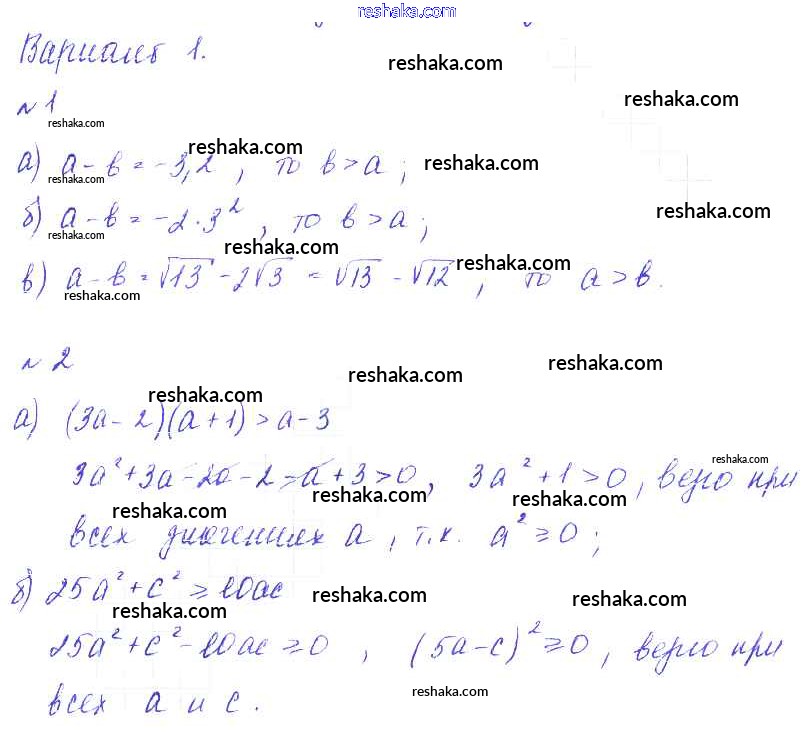 reshaka.com
Вариант 1.
reshaka.com
reshaka.com
№1
reshaka.com
а) a-в = -3,2, то в>a;
reshaka.com
reshaka.com
reshaka.com
б) a-в = -2·3², то в>a;
reshaka.com
reshaka.com
reshaka.com
в) a-в = √13 - 2√3 = √13 - √12, то a>в.
reshaka.com
reshaka.com
№2
reshaka.com
reshaka.com
reshaka.com
а) (3a-2)(a+1)>a-3
3a²+3a-2a-2-a+3>0, 3a²+1>0, верно при
reshaka.com
reshaka.com
reshaka.com
reshaka.com
всех значениях a, т.к. a²≥0;
б) 25a²+c²≥10ac
reshaka.com
reshaka.com
reshaka.com
25a²+c²-10ac≥0, (5a-c)²≥0, верно при
всех a и c.
reshaka.com